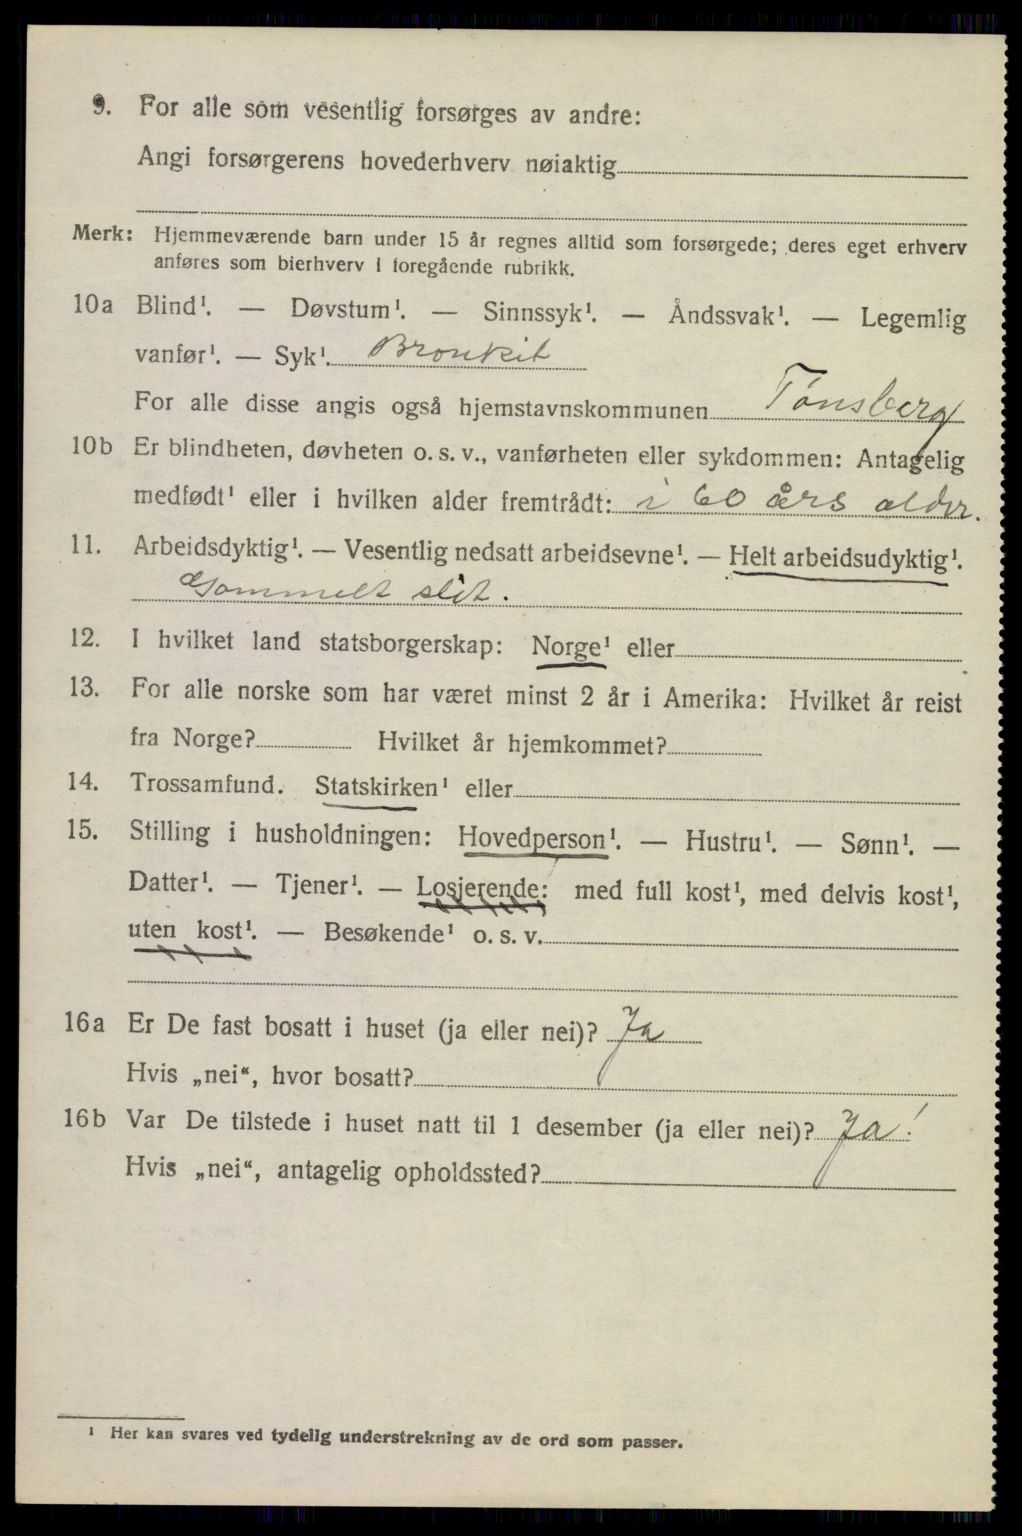 9. For alle som vesentlig forsørges av andre:
Angi forsørgerens hovederhverv nøiaktig
Merk: Hjemmeværende barn under 15 år regnes alltid som forsørgede; deres eget erhverv
anføres som bierhverv i foregående rubrikk.
10a Blind¹. — Døvstum¹. — Sinnssyk¹. — Åndssvak¹. — Legemlig
vanfør¹. — Syk¹. Bronkit
For alle disse angis også hjemstavnskommunen Tønsberg
10b Er blindheten, døvheten o. s. v., vanførheten eller sykdommen: Antagelig
medfødt¹ eller i hvilken alder fremtrådt: i 60 års alder.
11. Arbeidsdyktig¹. — Vesentlig nedsatt arbeidsevne¹. — Helt arbeidsudyktig¹.
Gammelt slit.
12. I hvilket land statsborgerskap: Norge¹ eller
13. For alle norske som har været minst 2 år i Amerika: Hvilket år reist
fra Norge? Hvilket år hjemkommet?
14. Trossamfund. Statskirken¹ eller
15. Stilling i husholdningen: Hovedperson¹. — Hustru¹. — Sønn¹. —
Datter¹. — Tjener¹. — Losjerende: med full kost¹, med delvis kost¹,
uten kost¹. — Besøkende¹ o. s. v.
16a Er De fast bosatt i huset (ja eller nei)? Ja
Hvis „nei“, hvor bosatt?
16b Var De tilstede i huset natt til 1 desember (ja eller nei)? Ja!
Hvis „nei“, antagelig opholdssted?
¹ Her kan svares ved tydelig understrekning av de ord som passer.